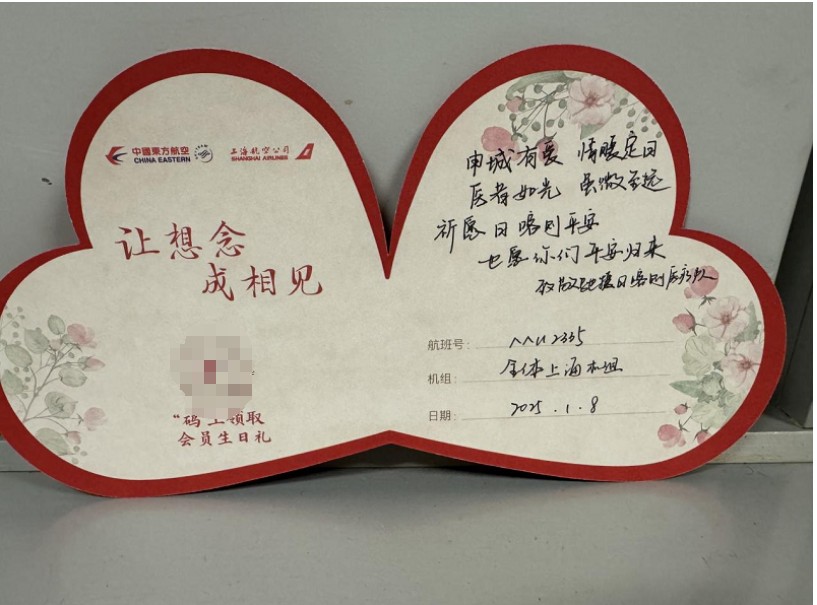 中國東方航空
CHINA EASTERN
上海航空公司
SHANGHAI AIRLINES
让想念
成相见
上领取
会员生日礼
申城有爱 情暖定日
医者如光 虽微至远
祈愿日喀则平安
也愿你们平安归来
援日喀则医疗队
航班号: MU2335
机组: 全体上海机组
日期: 2025.1.8